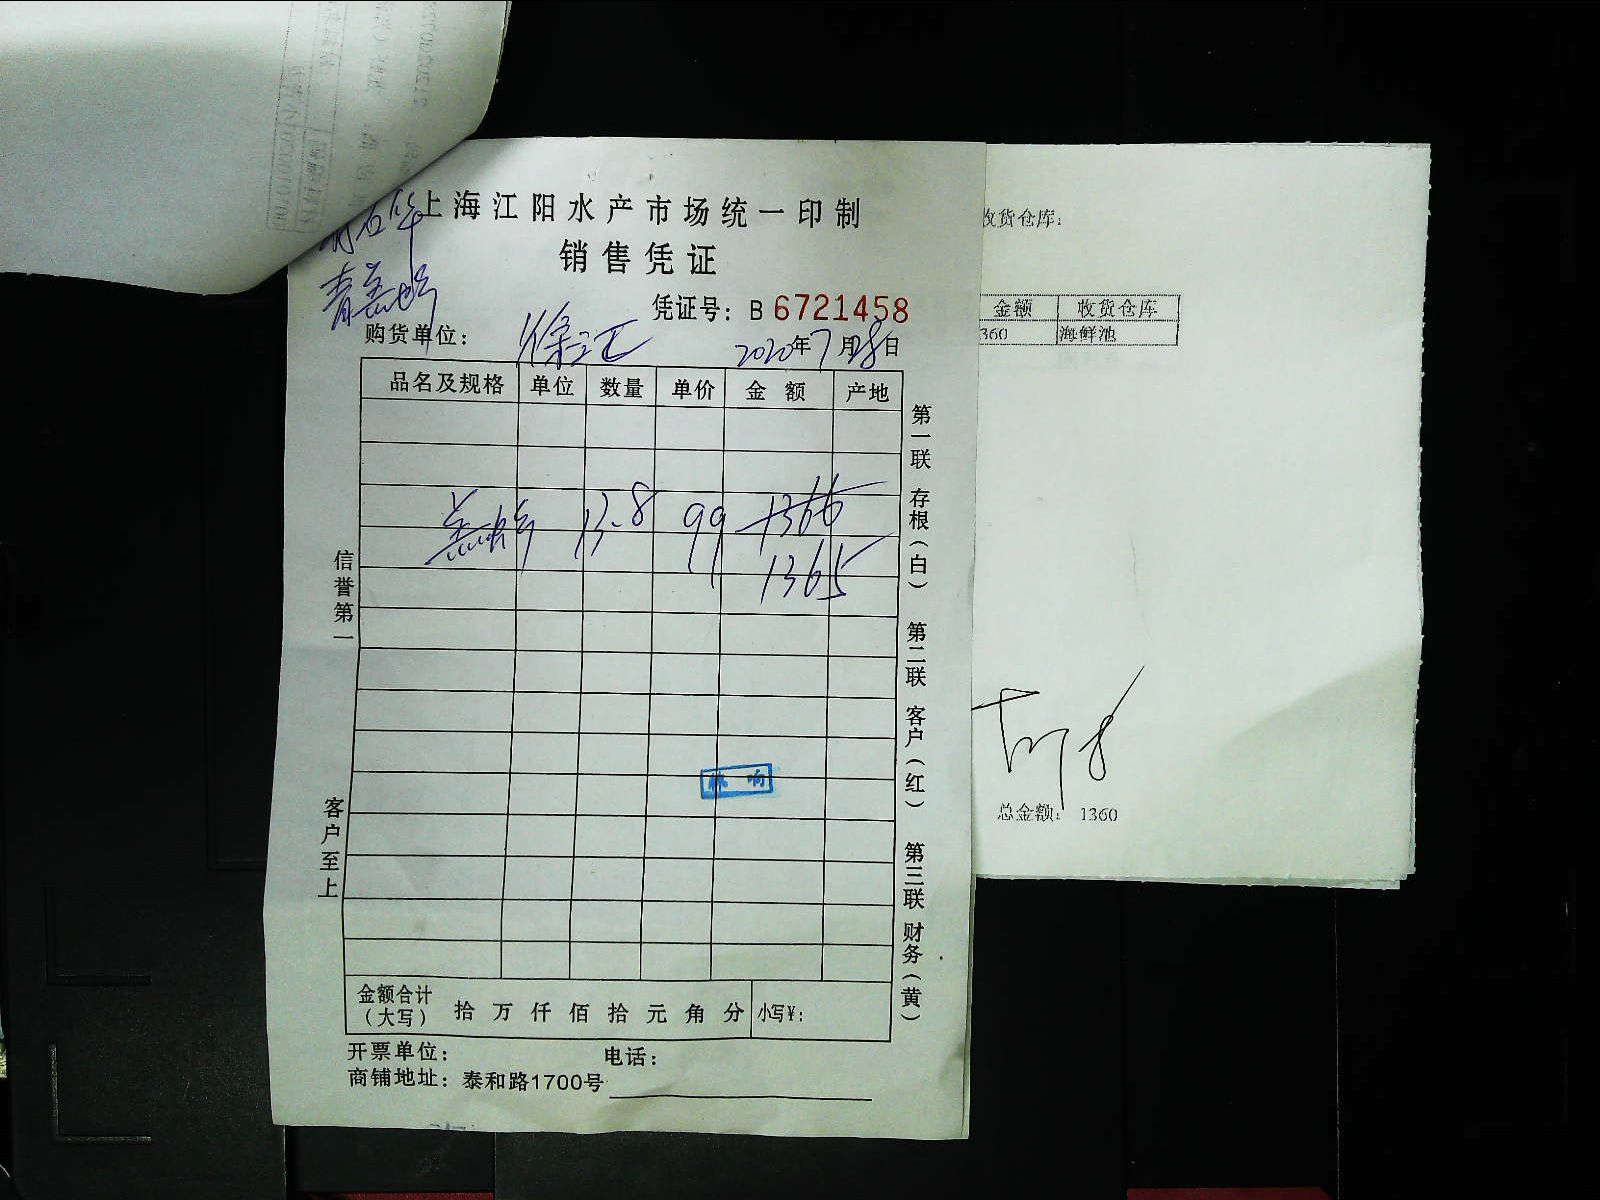 上海江阳水产市场统一印制
销售凭证
凭证号：B 6721458
购货单位：
2020年7月28日
品名及规格 单位 数量 单价 金 额 产地
13.8 99 1366
1365
信誉第一
客户至上
第一联 存根（白） 第二联 客户（红） 第三联 财务（黄）
金额合计（大写） 拾 万 仟 佰 拾 元 角 分 小写¥：
开票单位： 电话：
商铺地址：泰和路1700号
收货仓库：
金额 收货仓库
360 海鲜池
总金额： 1360